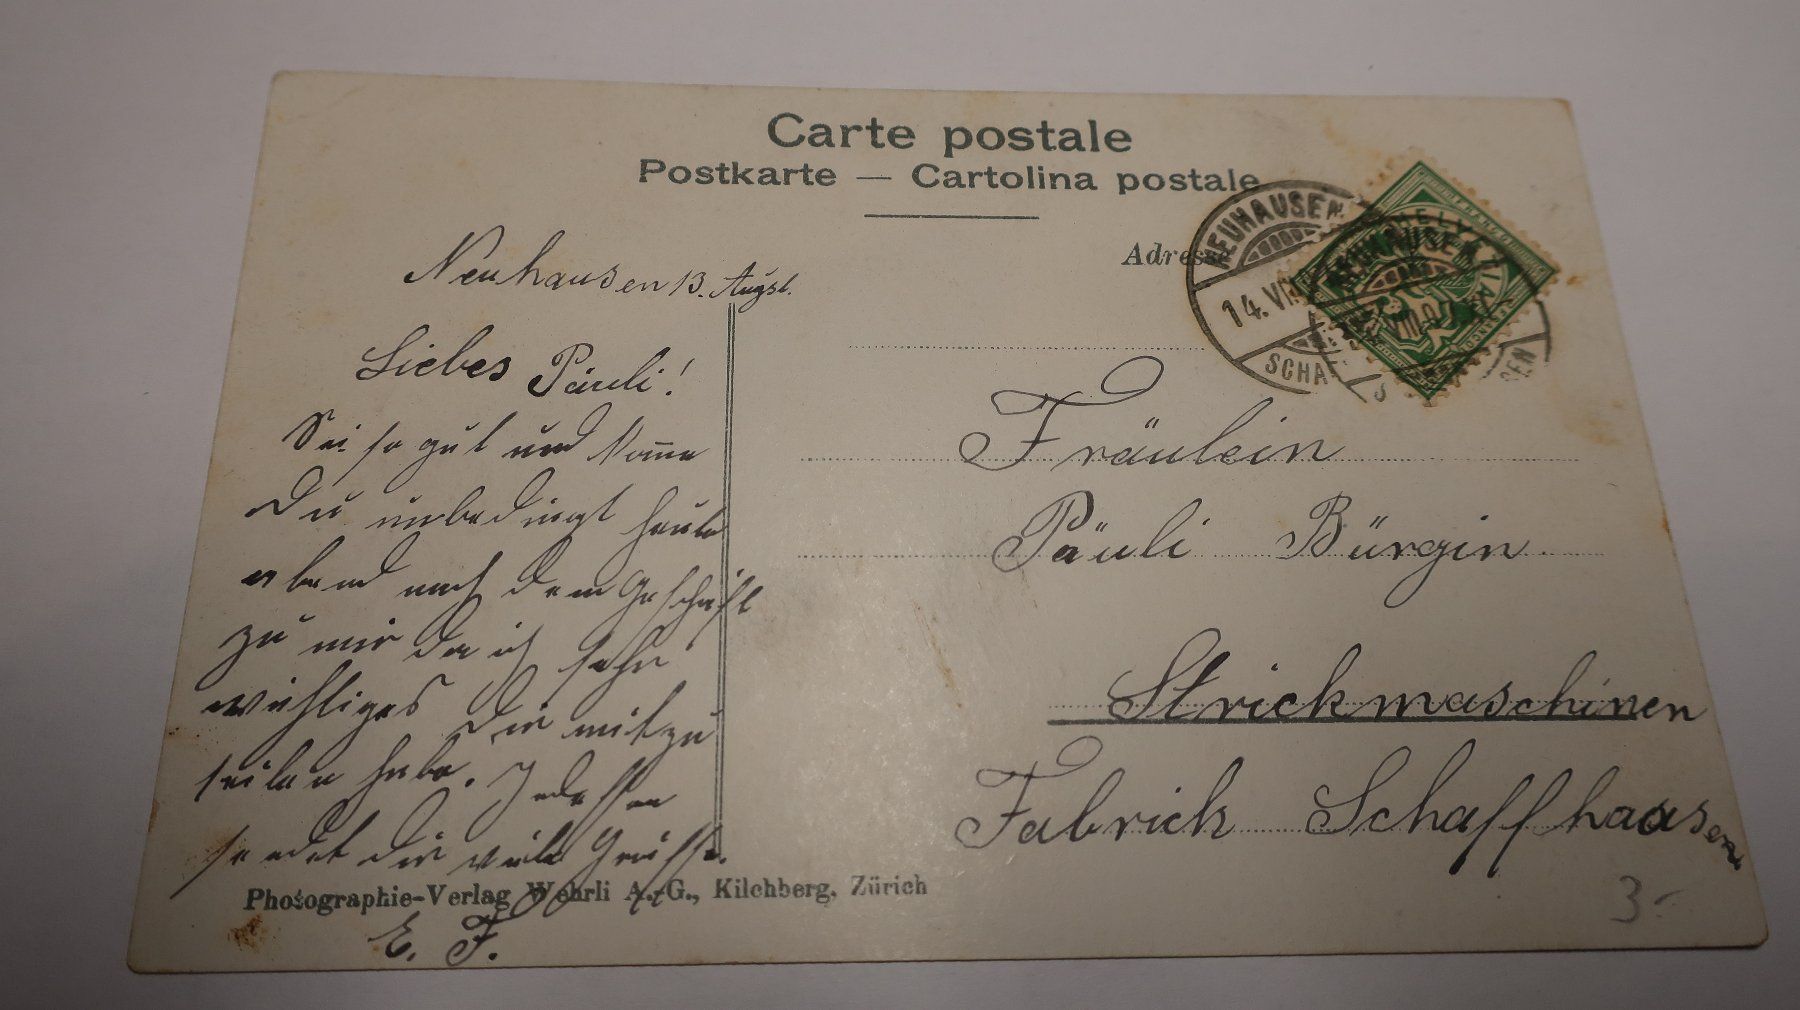 Carte postale
Postkarte — Cartolina postale
Adresse
NEUHAUSEN
14. VIII
SCHA
HELVETIA
NEUHAUSEN
VIII.07
SEN
Neuhausen 13. Augst.
Liebes Päuli!
Sei so gut und komme
Du unbedingt heute
abend nach dem Geschäft
zu mir da ich sehr
wichtiges dir mitzu
teilen habe. Indessen
sendet dir viele Grüsse.
E. F.
Fräulein
Päuli Bürgin.
Strickmaschinen
Fabrick Schaffhausen
Photographie-Verlag Wehrli A.-G., Kilchberg, Zürich
3.-